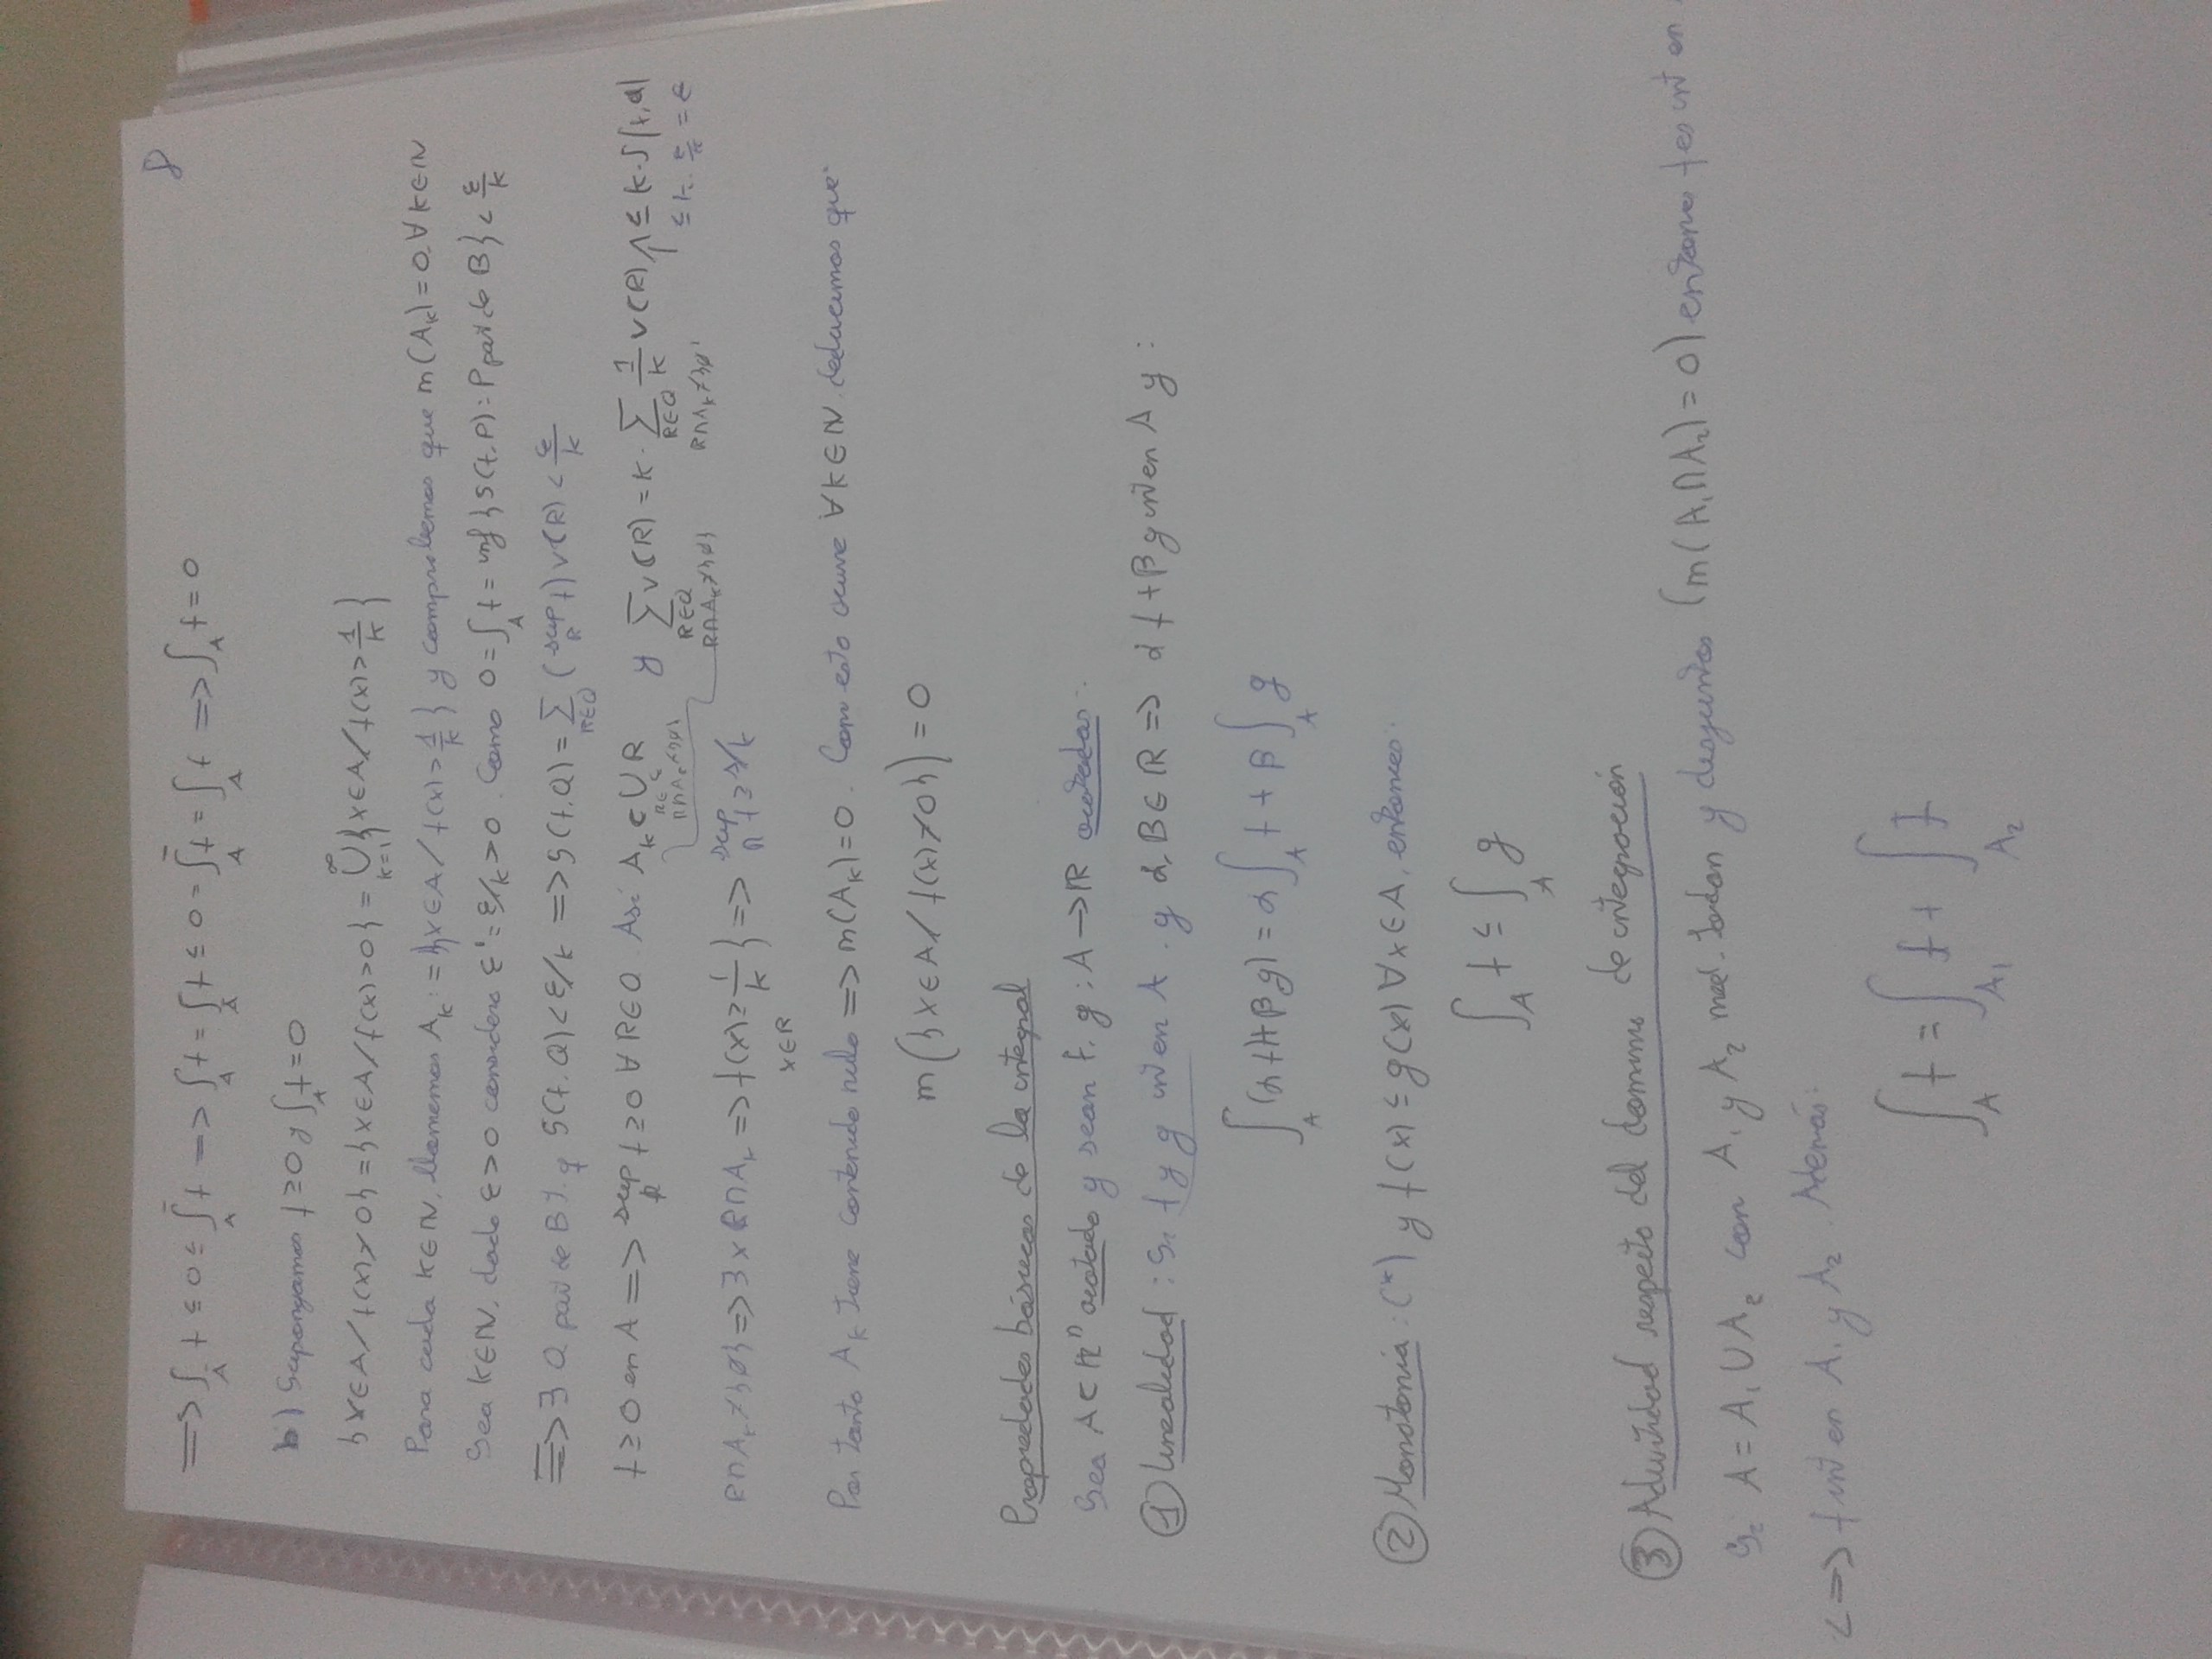 8
=> ∫_A f ≤ 0 ≤ ∫̄_A f => ∫_A f = ∫_A f ≤ 0 = ∫̄_A f = ∫_A f => ∫_A f = 0
b) Supongamos f ≥ 0 y ∫_A f = 0
{x∈A / f(x) ≠ 0} = {x∈A / f(x) > 0} = ⋃_{k=1}^∞ {x∈A / f(x) > 1/k}
Para cada k∈ℕ, llamemos A_k := {x∈A / f(x) > 1/k} y comprobemos que m(A_k) = 0 ∀k∈ℕ
Sea k∈ℕ, dado ε>0 considero ε' = ε/k > 0. Como 0 = ∫_A f = inf {S(f,P): P part de B} < ε/k
=> ∃ Q part de B t.q S(f,Q) < ε/k => S(f,Q) = Σ_{R∈Q} (sup_R f) v(R) < ε/k
f ≥ 0 en A => sup_R f ≥ 0 ∀R∈Q. Así A_k ⊂ ⋃_{R∈Q, R∩A_k≠{∅}} R y Σ_{R∈Q, R∩A_k≠{∅}} v(R) = k· Σ_{R∈Q, R∩A_k≠{∅}} 1/k v(R) ≤ k·S(f,Q)
≤ k· ε/k = ε
R∩A_k≠{∅} => ∃ x∈R∩A_k => f(x) ≥ 1/k } => sup_R f ≥ 1/k
x∈R
Por tanto A_k tiene contenido nulo => m(A_k) = 0. Como esto ocurre ∀k∈ℕ deducimos que:
m({x∈A / f(x) ≠ 0}) = 0
Propiedades básicas de la integral
Sea A⊂ℝⁿ acotado y sean f, g: A→ℝ acotadas:
① Linealidad: Si f y g int en A. y α,β∈ℝ => αf + βg int en A y:
∫_A (αf + βg) = α ∫_A f + β ∫_A g
② Monotonía: (*) y f(x) ≤ g(x) ∀x∈A, entonces:
∫_A f ≤ ∫_A g
③ Aditividad respecto del dominio de integración
Si A = A₁ ∪ A₂ con A₁ y A₂ med. Jordan y disjuntos (m(A₁∩A₂) = 0) entonces f es int en
<=> f int en A₁ y A₂. Además:
∫_A f = ∫_{A₁} f + ∫_{A₂} f